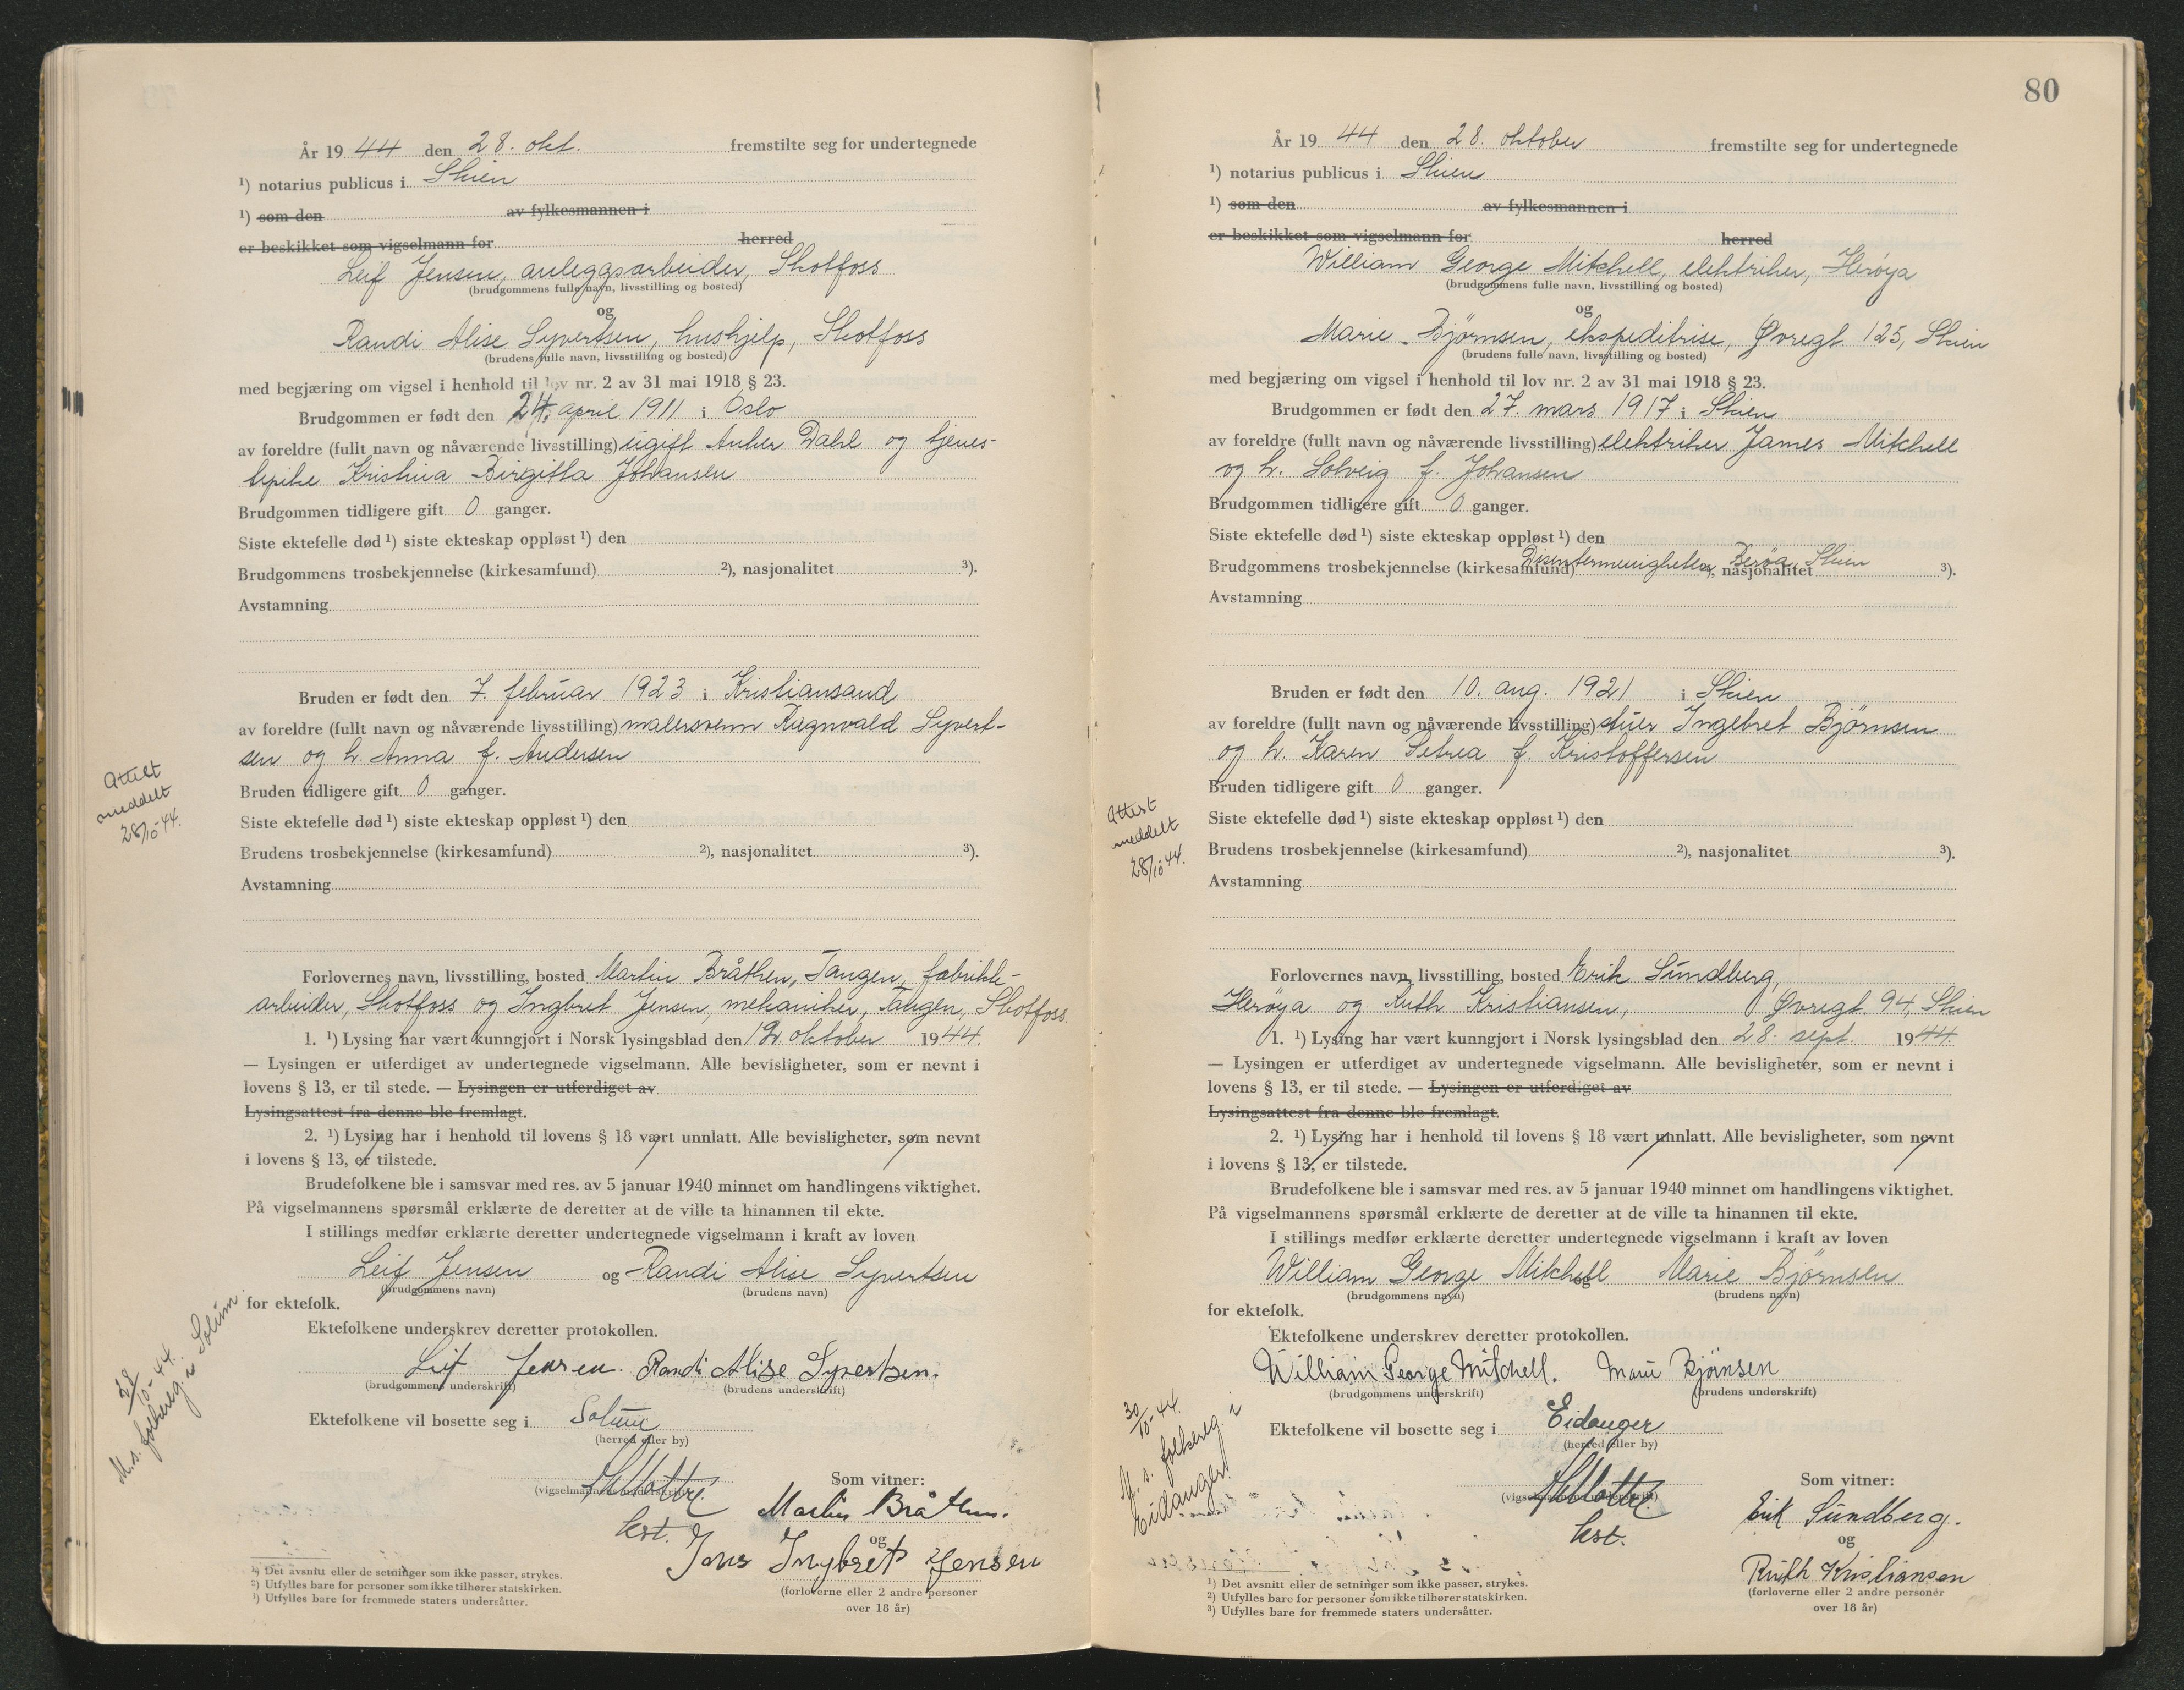 År 19 44 den 28. okt. fremstilte seg for undertegnede
¹) notarius publicus i Skien
¹) som den av fylkesmannen i
er beskikket som vigselmann for herred
Leif Jensen, anleggsarbeider, Skotfoss
(brudgommens fulle navn, livsstilling og bosted)
og
Randi Alise Syvertsen, hushjelp, Skotfoss
(brudens fulle navn, livsstilling og bosted)
med begjæring om vigsel i henhold til lov nr. 2 av 31 mai 1918 § 23.
Brudgommen er født den 24. april 1911 i Oslo
av foreldre (fullt navn og nåværende livsstilling) ugift Anker Dahl og tjenes-
tepike Kristina Birgitta Johansen
Brudgommen tidligere gift 0 ganger.
Siste ektefelle død ¹) siste ekteskap oppløst ¹) den
Brudgommens trosbekjennelse (kirkesamfund) ²), nasjonalitet ³).
Avstamning
Bruden er født den 7. februar 1923 i Kristiansand
av foreldre (fullt navn og nåværende livsstilling) malersvenn Ragnvald Syvert-
sen og h. Anna f. Andersen
Bruden tidligere gift 0 ganger.
Attest
meddelt
28/10-44.
Siste ektefelle død ¹) siste ekteskap oppløst ¹) den
Brudens trosbekjennelse (kirkesamfund) ²), nasjonalitet ³).
Avstamning
Forlovernes navn, livsstilling, bosted Martin Bråthen, Tangen, fabrikk-
arbeider, Skotfoss og Ingbret Jensen, mekaniker, Tangen, Skotfoss
1. ¹) Lysing har vært kunngjort i Norsk lysingsblad den 12. oktober 1944.
— Lysingen er utferdiget av undertegnede vigselmann. Alle bevisligheter, som er nevnt i
lovens § 13, er til stede. — Lysingen er utferdiget av
Lysingsattest fra denne ble fremlagt.
2. ¹) Lysing har i henhold til lovens § 18 vært unnlatt. Alle bevisligheter, som nevnt
i lovens § 13, er tilstede.
Brudefolkene ble i samsvar med res. av 5 januar 1940 minnet om handlingens viktighet.
På vigselmannens spørsmål erklærte de deretter at de ville ta hinannen til ekte.
I stillings medfør erklærte deretter undertegnede vigselmann i kraft av loven
Leif Jensen og Randi Alise Syvertsen
(brudgommens navn) (brudens navn)
for ektefolk.
Ektefolkene underskrev deretter protokollen.
Leif Jensen. Randi Alise Syvertsen.
(brudgommens underskrift) (brudens underskrift)
28/10-44.
M. s. folkereg. i Solum.
Ektefolkene vil bosette seg i Solum
(herred eller by)
(vigselmannens underskrift)
Som vitner:
Martin Bråthen.
og
Jens Ingbret Jensen
(forloverne eller 2 andre personer
over 18 år)
¹) Det avsnitt eller de setninger som ikke passer, strykes.
²) Utfylles bare for personer som ikke tilhører statskirken.
³) Utfylles bare for fremmede staters undersåtter.
80
År 19 44 den 28. oktober fremstilte seg for undertegnede
¹) notarius publicus i Skien
¹) som den av fylkesmannen i
er beskikket som vigselmann for herred
William George Mitchell, elektriker, Herøya
(brudgommens fulle navn, livsstilling og bosted)
og
Marie Bjørnsen, ekspeditrise, Øvregt. 125, Skien
(brudens fulle navn, livsstilling og bosted)
med begjæring om vigsel i henhold til lov nr. 2 av 31 mai 1918 § 23.
Brudgommen er født den 27. mars 1917 i Skien
av foreldre (fullt navn og nåværende livsstilling) elektriker James Mitchell
og h. Solveig f. Johansen
Brudgommen tidligere gift 0 ganger.
Siste ektefelle død ¹) siste ekteskap oppløst ¹) den
Brudgommens trosbekjennelse (kirkesamfund) Disentermenigheten Berøa, Skien ²), nasjonalitet ³).
Avstamning
Bruden er født den 10. aug. 1921 i Skien
av foreldre (fullt navn og nåværende livsstilling) stuer Ingebret Bjørnsen
og h. Karen Petrea f. Kristoffersen
Bruden tidligere gift 0 ganger.
Attest
meddelt
28/10-44.
Siste ektefelle død ¹) siste ekteskap oppløst ¹) den
Brudens trosbekjennelse (kirkesamfund) ²), nasjonalitet ³).
Avstamning
Forlovernes navn, livsstilling, bosted Erik Sundberg,
Herøya og Ruth Kristiansen, Øvregt. 94, Skien
1. ¹) Lysing har vært kunngjort i Norsk lysingsblad den 28. sept. 1944.
— Lysingen er utferdiget av undertegnede vigselmann. Alle bevisligheter, som er nevnt i
lovens § 13, er til stede. — Lysingen er utferdiget av
Lysingsattest fra denne ble fremlagt.
2. ¹) Lysing har i henhold til lovens § 18 vært unnlatt. Alle bevisligheter, som nevnt
i lovens § 13, er tilstede.
Brudefolkene ble i samsvar med res. av 5 januar 1940 minnet om handlingens viktighet.
På vigselmannens spørsmål erklærte de deretter at de ville ta hinannen til ekte.
I stillings medfør erklærte deretter undertegnede vigselmann i kraft av loven
William George Mitchell Marie Bjørnsen
(brudgommens navn) (brudens navn)
for ektefolk.
Ektefolkene underskrev deretter protokollen.
William George Mitchell. Marie Bjørnsen
(brudgommens underskrift) (brudens underskrift)
30/10-44.
M. s. folkereg. i
Eidanger.
Ektefolkene vil bosette seg i Eidanger
(herred eller by)
(vigselmannens underskrift)
Som vitner:
Erik Sundberg.
og
Ruth Kristiansen
(forloverne eller 2 andre personer
over 18 år)
¹) Det avsnitt eller de setninger som ikke passer, strykes.
²) Utfylles bare for personer som ikke tilhører statskirken.
³) Utfylles bare for fremmede staters undersåtter.